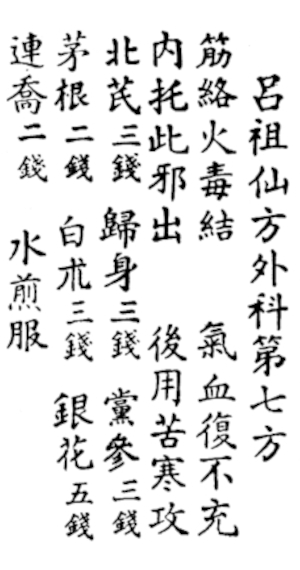 呂祖仙方外科第七方
筋絡火毒結　氣血復不充
内托此邪出　後用苦寒攻
北芪三錢　歸身三錢　黨參三錢
茅根二錢　白朮三錢　銀花五錢
連喬二錢　水煎服